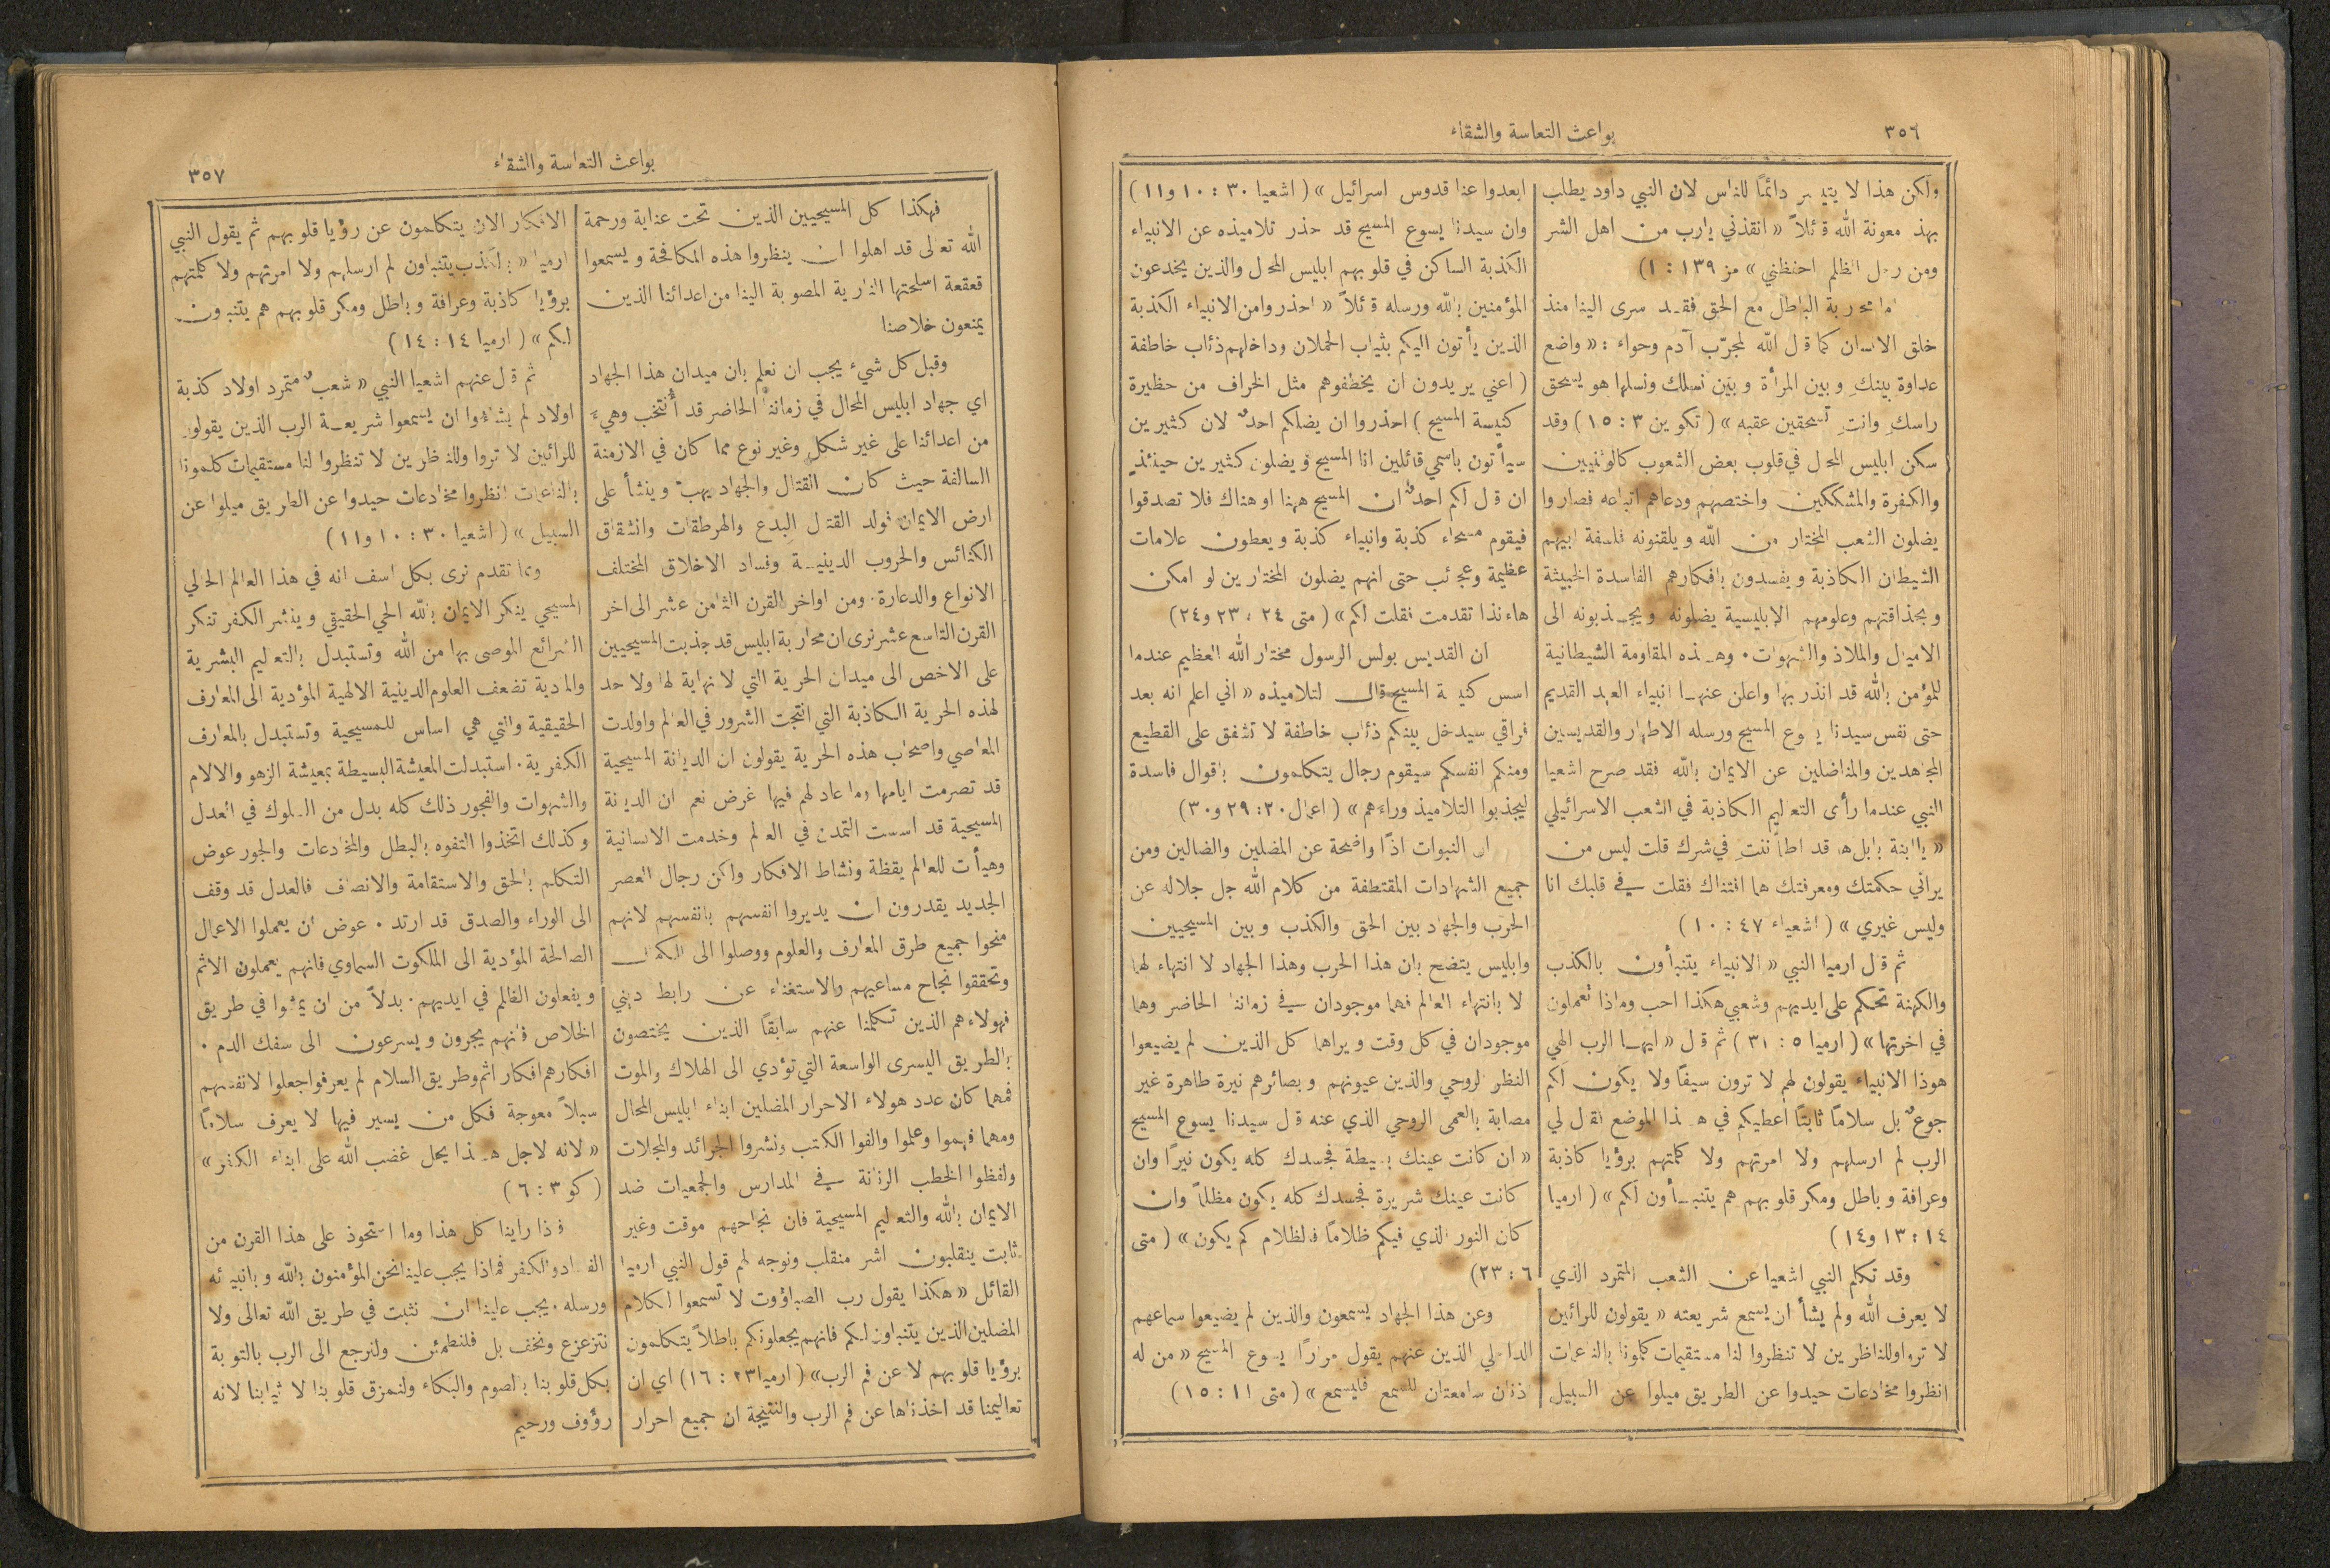 ٣٥٦
بواعث التعاسة والشقاء
ولكن هذا لا يتيسر دائمًا للناس لان النبي داود يطلب
بهذ معونة الله قائلاً « انقذني يارب من اهل الشر
ومن رجل الظلم احفظني » مز ١٣٩ : ١)
اما محاربة الباطل مع الحق فقد سرى الينا منذ
خلق الانسان كما قال الله لمجرّب آدم وحواء : « واضع
عداوة بينكِ وبين المرأة وبين نسلك ونسلها هو يسحق
راسكِ وانتِ تسحقين عقبه » ( تكوين ٣ : ١٥ ) وقد
سكن ابليس المحال في قلوب بعض الشعوب كالوثنيين
والكفرة والمشككين واختصهم ودعاهم اتباعه فصاروا
يضلون الشعب المختار من الله ويلقنونه فلسفة ابيهم
الشيطان الكاذبة ويفسدون بافكارهم الفاسدة الخبيثة
وبحذاقتهم وعلومهم الإبليسية يضلونه ويجذبونه الى
الاميال والملاذ والشهوات . وهذه المقاومة الشيطانية
للمؤمن بالله قد انذر بها واعلن عنها انبياء العهد القديم
حتى نفس سيدنا يسوع المسيح ورسله الاطهار والقديسين
المجاهدين والمناضلين عن الايمان بالله فقد صرح اشعيا
النبي عندما رأى التعاليم الكاذبة في الشعب الاسرائيلي
« يا ابنة بابل ها قد اطأننتِ في شرك قلت ليس من
يراني حكمتك ومعرفتك هما افتناك فقلت في قلبك انا
وليس غيري » ( اشعياء ٤٧ : ١٠ )
ثم قال ارميا النبي « الانبياء يتنبأون بالكذب
والكهنة تحكم على ايديهم وشعبي هكذا احب وماذا تعملون
في اخرتها » ( ارميا ٥ : ٣١ ) ثم قال « ايها الرب الهي
هوذا الانبياء يقولون لهم لا ترون سيفًا ولا يكون لكم
جوعٌ بل سلامًا ثابتًا أعطيكم في هذا الموضع فقال لي
الرب لم ارسلهم ولا امرتهم ولا كلمتهم برؤيا كاذبة
وعرافة وباطل ومكر قلوبهم هم يتنبأون لكم » ( ارميا
١٤ : ١٣ و١٤ )
وقد تكلم النبي اشعيا عن الشعب المتمرد الذي
لا يعرف الله ولم يشأ ان يسمع شريعته « يقولون للرائين
لا تروا وللناظرين لا تنظروا لنا مستقيمات كلمونا بالناعمات
انظروا مخادعات حيدوا عن الطريق ميلوا عن السبيل
ابعدوا عنا قدوس اسرائيل » ( اشعيا ٣٠ : ١٠ و١١ )
وان سيدنا يسوع المسيح قد حذر تلاميذه عن الانبياء
الكذبة الساكن في قلوبهم ابليس المحال والذين يخدعون
المؤمنين بالله ورسله قائلاً « احذروا من الانبياء الكذبة
الذين يأتون اليكم بثياب الحملان وداخلهم ذئاب خاطفة
( اعني يريدون ان يخطفوهم مثل الخراف من حظيرة
كنيسة المسيح ) احذروا ان يضلكم احدٌ لان كثيرين
سيأتون باسمي قائلين انا المسيح ويضلون كثيرين حينئذٍ
ان قال لكم احدٌ ان المسيح ههنا او هناك فلا تصدقوا
فيقوم مسحاء كذبة وانبياء كذبة ويعطون علامات
عظيمة وعجائب حتى انهم يضلون المختارين لو امكن
هاءنذا تقدمت فقلت لكم » ( متى ٢٤ : ٢٣ و٢٤)
ان القديس بولس الرسول مختار الله العظيم عندما
اسس كنيسة المسيح قال لتلاميذه « اني اعلم انه بعد
فراقي سيدخل بينكم ذئاب خاطفة لا تشفق على القطيع
ومنكم انفسكم سيقوم رجال يتكلمون باقوال فاسدة
ليجذبوا التلاميذ وراءهم » ( اعمال ٢٠ : ٢٩ و٣٠)
ان النبوات اذًا واضحة عن المضلين والضالين ومن
جميع الشهادات المقتطفة من كلام الله جل جلاله عن
الحرب والجهاد بين الحق والكذب وبين المسيحيين
وابليس يتضح بان هذا الحرب وهذا الجهاد لا انتهاء لهما
لا بانتهاء العالم فهما موجودان في زماننا الحاضر وهما
موجودان في كل وقت ويراهما كل الذين لم يضيعوا
النظر الروحي والذين عيونهم وبصائرهم نيرة طاهرة غير
مصابة بالعمى الروحي الذي عنه قال سيدنا يسوع المسيح
« ان كانت عينك بسيطة فجسدك كله يكون نيرًا وان
كانت عينك شريرة فجسدك كله يكون مظلماً وان
كان النور الذي فيكم ظلامًا فالظلام كم يكون » ( متى
٦ : ٢٣)
وعن هذا الجهاد يسمعون والذين لم يضيعوا سماعهم
الداخلي الذين عنهم يقول مرارًا يسوع المسيح « من له
اذنان سامعتان للسمع فليسمع » ( متى ١١ : ١٥ )
بواعث التعاسة والشقاء
٣٥٧
فهكذا كل المسيحيين الذين تحت عناية ورحمة
الله تعالى قد اهلوا ان ينظروا هذه المكافحة ويسمعوا
قعقعة اسلحتها النارية المصوبة الينا من اعدائنا الذين
يمنعون خلاصنا
وقبل كل شيء يجب ان نعلم بان ميدان هذا الجهاد
اي جهاد ابليس المحال في زماننا الحاضر قد أُنتخب وهيء
من اعدائنا على غير شكل وغير نوع مما كان في الازمنة
السالفة حيث كان القتال والجهاد يهبّ وينشأ على
ارض الايمان فولد القتال البدع والهرطقات وانشقاق
الكنائس والحروب الدينية وفساد الاخلاق المختلف
الانواع والدعارة . ومن اواخر القرن الثامن عشر الى اخر
القرن التاسع عشر نرى ان محاربة ابليس قد جذبت المسيحيين
على الاخص الى ميدان الحرية التي لا نهاية لها ولا حد
لهذه الحرية الكاذبة التي انتجت الشرور في العالم واولدت
المعاصي واصحاب هذه الحرية يقولون ان الديانة المسيحية
قد تصرمت ايامها وما عاد لهم فيها غرض نعم ان الديانة
المسيحية قد اسست التمدن في العالم وخدمت الانسانية
وهيأت للعالم يقظة ونشاط الافكار ولكن رجال العصر
الجديد يقدرون ان يديروا انفسهم بانفسهم لانهم
منحوا جميع طرق المعارف والعلوم ووصلوا الى الكمال
وتحققوا نجاح مساعيهم والاستغناء عن رابط ديني
فهولاء هم الذين تكلمنا عنهم سابقًا الذين يختصون
بالطريق اليسرى الواسعة التي تؤدي الى الهلاك والموت
فمهما كان عدد هولاء الاحرار المضلين ابناء ابليس المحال
ومهما فهموا وعلموا والفوا الكتب ونشروا الجرائد والمجلات
ولفظوا الخطب الرنانة في المدارس والجمعيات ضد
الايمان بالله والتعاليم المسيحية فان نجاحهم موقت وغير
ثابت ينقلبون اشر منقلب ونوجه لهم قول النبي ارميا
القائل « هكذا يقول رب الصباؤوت لا تسمعوا لكلام
المضلين الذين يتنباون لكم فانهم يجعلونكم باطلاً يتكلمون
برؤيا قلوبهم لا عن فم الرب» ( ارميا ٢٣ : ١٦) اي ان
تعاليمنا قد اخذناها عن فم الرب والنتيجة ان جميع احرار
الافكار الان يتكلمون عن رؤيا قلوبهم ثم يقول النبي
ارميا « بالكذب يتنباون لم ارسلهم ولا امرتهم ولا كلمتهم
برؤيا كاذبة وعرافة وباطل ومكر قلوبهم هم يتنباون
لكم » ( ارميا ١٤ : ١٤ )
ثم قال عنهم اشعيا النبي « شعبٌ متمرد اولاد كذبة
اولاد لم يشاؤوا ان يسمعوا شريعة الرب الذين يقولون
للرائين لا تروا وللناظرين لا تنظروا لنا مستقيمات كلمونا
بالناعمات انظروا مخادعات حيدوا عن الطريق ميلوا عن
السبيل » ( اشعيا ٣٠ : ١٠ و١١ )
ومما تقدم نرى بكل اسف انه في هذا العالم الحالي
المسيحي ينكر الايمان بالله الحي الحقيقي وينشر الكفر تنكر
الشرائع الموصى بها من الله وتستبدل بالتعاليم البشرية
والمادية تضعف العلوم الدينية الالهية المؤدية الى المعارف
الحقيقية والتي هي اساس للمسيحية وتستبدل بالمعارف
الكفرية . استبدلت المعيشة البسيطة بمعيشة الزهو والالام
والشهوات والفجور ذلك كله بدل من السلوك في العدل
وكذلك اتخذوا التفوه بالبطل والمخادعات والجور عوض
التكلم بالحق والاستقامة والانصاف فالعدل قد وقف
الى الوراء والصدق قد ارتد . عوض ان يعملوا الاعمال
الصالحة المؤدية الى الملكوت السماوي فانهم يعملون الاثم
ويفعلون الظلم في ايديهم . بدلاً من ان يمشوا في طريق
الخلاص فانهم يجرون ويسرعون الى سفك الدم .
افكارهم افكار اثم وطريق السلام لم يعرفوا جعلوا لانفسهم
سبلاً معوجة فكل من يسير فيها لا يعرف سلامًا
« لانه لاجل هذا يحل غضب الله على ابناء الكفر »
( كو ٣ : ٦ )
فاذا راينا كل هذا وما استحوذ على هذا القرن من
الفساد والكفر فماذا يجب علينا نحن المؤمنون بالله وبانبيائه
ورسله . يجب علينا ان نثبت في طريق الله تعالى ولا
نتزعزع ونخف بل فلنطمئن ولنرجع الى الرب بالتوبة
بكل قلوبنا بالصوم والبكاء ولنمزق قلوبنا لا ثيابنا لانه
رؤوف ورحيم